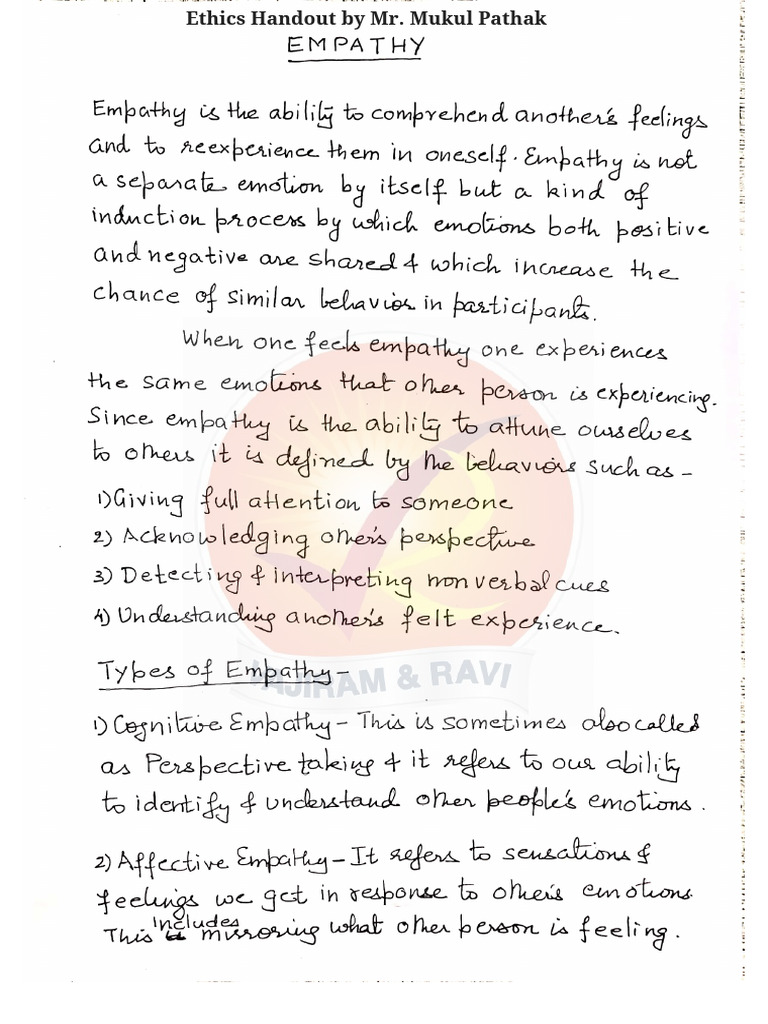 Ethics Handout by Mr. Mukul Pathak
EMPATHY
Empathy is the ability to comprehend another's feelings
and to reexperience them in oneself. Empathy is not
a separate emotion by itself but a kind of
induction process by which emotions both positive
and negative are shared & which increase the
chance of similar behavior in participants.
When one feels empathy one experiences
the same emotions that other person is experiencing.
Since empathy is the ability to attune ourselves
to others it is defined by the behaviors such as –
1) Giving full attention to someone
2) Acknowledging other's perspective
3) Detecting & interpreting non verbal cues
4) Understanding another's felt experience.
Types of Empathy –
VAJIRAM & RAVI
1) Cognitive Empathy – This is sometimes also called
as Perspective taking & it refers to our ability
to identify & understand other people's emotions.
2) Affective Empathy – It refers to sensations &
feelings we get in response to other's emotions.
This includes mirroring what other person is feeling.